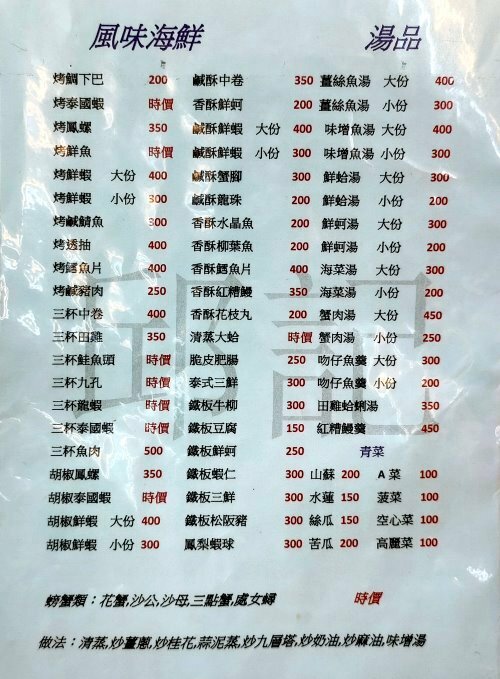 風味海鮮 湯品
烤鯛下巴 200 鹹酥中卷 350 薑絲魚湯 大份 400
烤泰國蝦 時價 香酥鮮蚵 200 薑絲魚湯 小份 300
烤鳳螺 350 鹹酥鮮蝦 大份 400 味增魚湯 大份 400
烤鮮魚 時價 鹹酥鮮蝦 小份 300 味增魚湯 小份 300
烤鮮蝦 大份 400 鹹酥蟹腳 300 鮮蛤湯 大份 300
烤鮮蝦 小份 300 鹹酥龍珠 200 鮮蛤湯 小份 200
烤鹹鯖魚 300 香酥水晶魚 200 鮮蚵湯 大份 300
烤透抽 400 香酥柳葉魚 200 鮮蚵湯 小份 200
烤鱈魚片 400 香酥鱈魚片 400 海菜湯 大份 300
烤鹹豬肉 250 香酥紅糟鰻 350 海菜湯 小份 200
三杯中卷 400 香酥花枝丸 200 蟹肉湯 大份 450
三杯田雞 350 清蒸大蛤 時價 蟹肉湯 小份 250
三杯鮭魚頭 時價 脆皮肥腸 250 吻仔魚羹 大份 300
三杯九孔 時價 泰式三鮮 300 吻仔魚羹 小份 200
三杯龍蝦 時價 鐵板牛柳 300 田雞蛤蜊湯 350
三杯泰國蝦 時價 鐵板豆腐 150 紅糟鰻羹 450
三杯魚肉 500 鐵板鮮蚵 250 青菜
胡椒鳳螺 350 鐵板蝦仁 300 山蘇 200 A菜 100
胡椒泰國蝦 時價 鐵板三鮮 300 水蓮 150 菠菜 100
胡椒鮮蝦 大份 400 鐵板松阪豬 300 絲瓜 150 空心菜 100
胡椒鮮蝦 小份 300 鳳梨蝦球 300 苦瓜 200 高麗菜 100
邱記
螃蟹類：花蟹,沙公,沙母,三點蟹,處女蟳 時價
做法：清蒸,炒薑蔥,炒桂花,蒜泥蒸,炒九層塔,炒奶油,炒麻油,味增湯